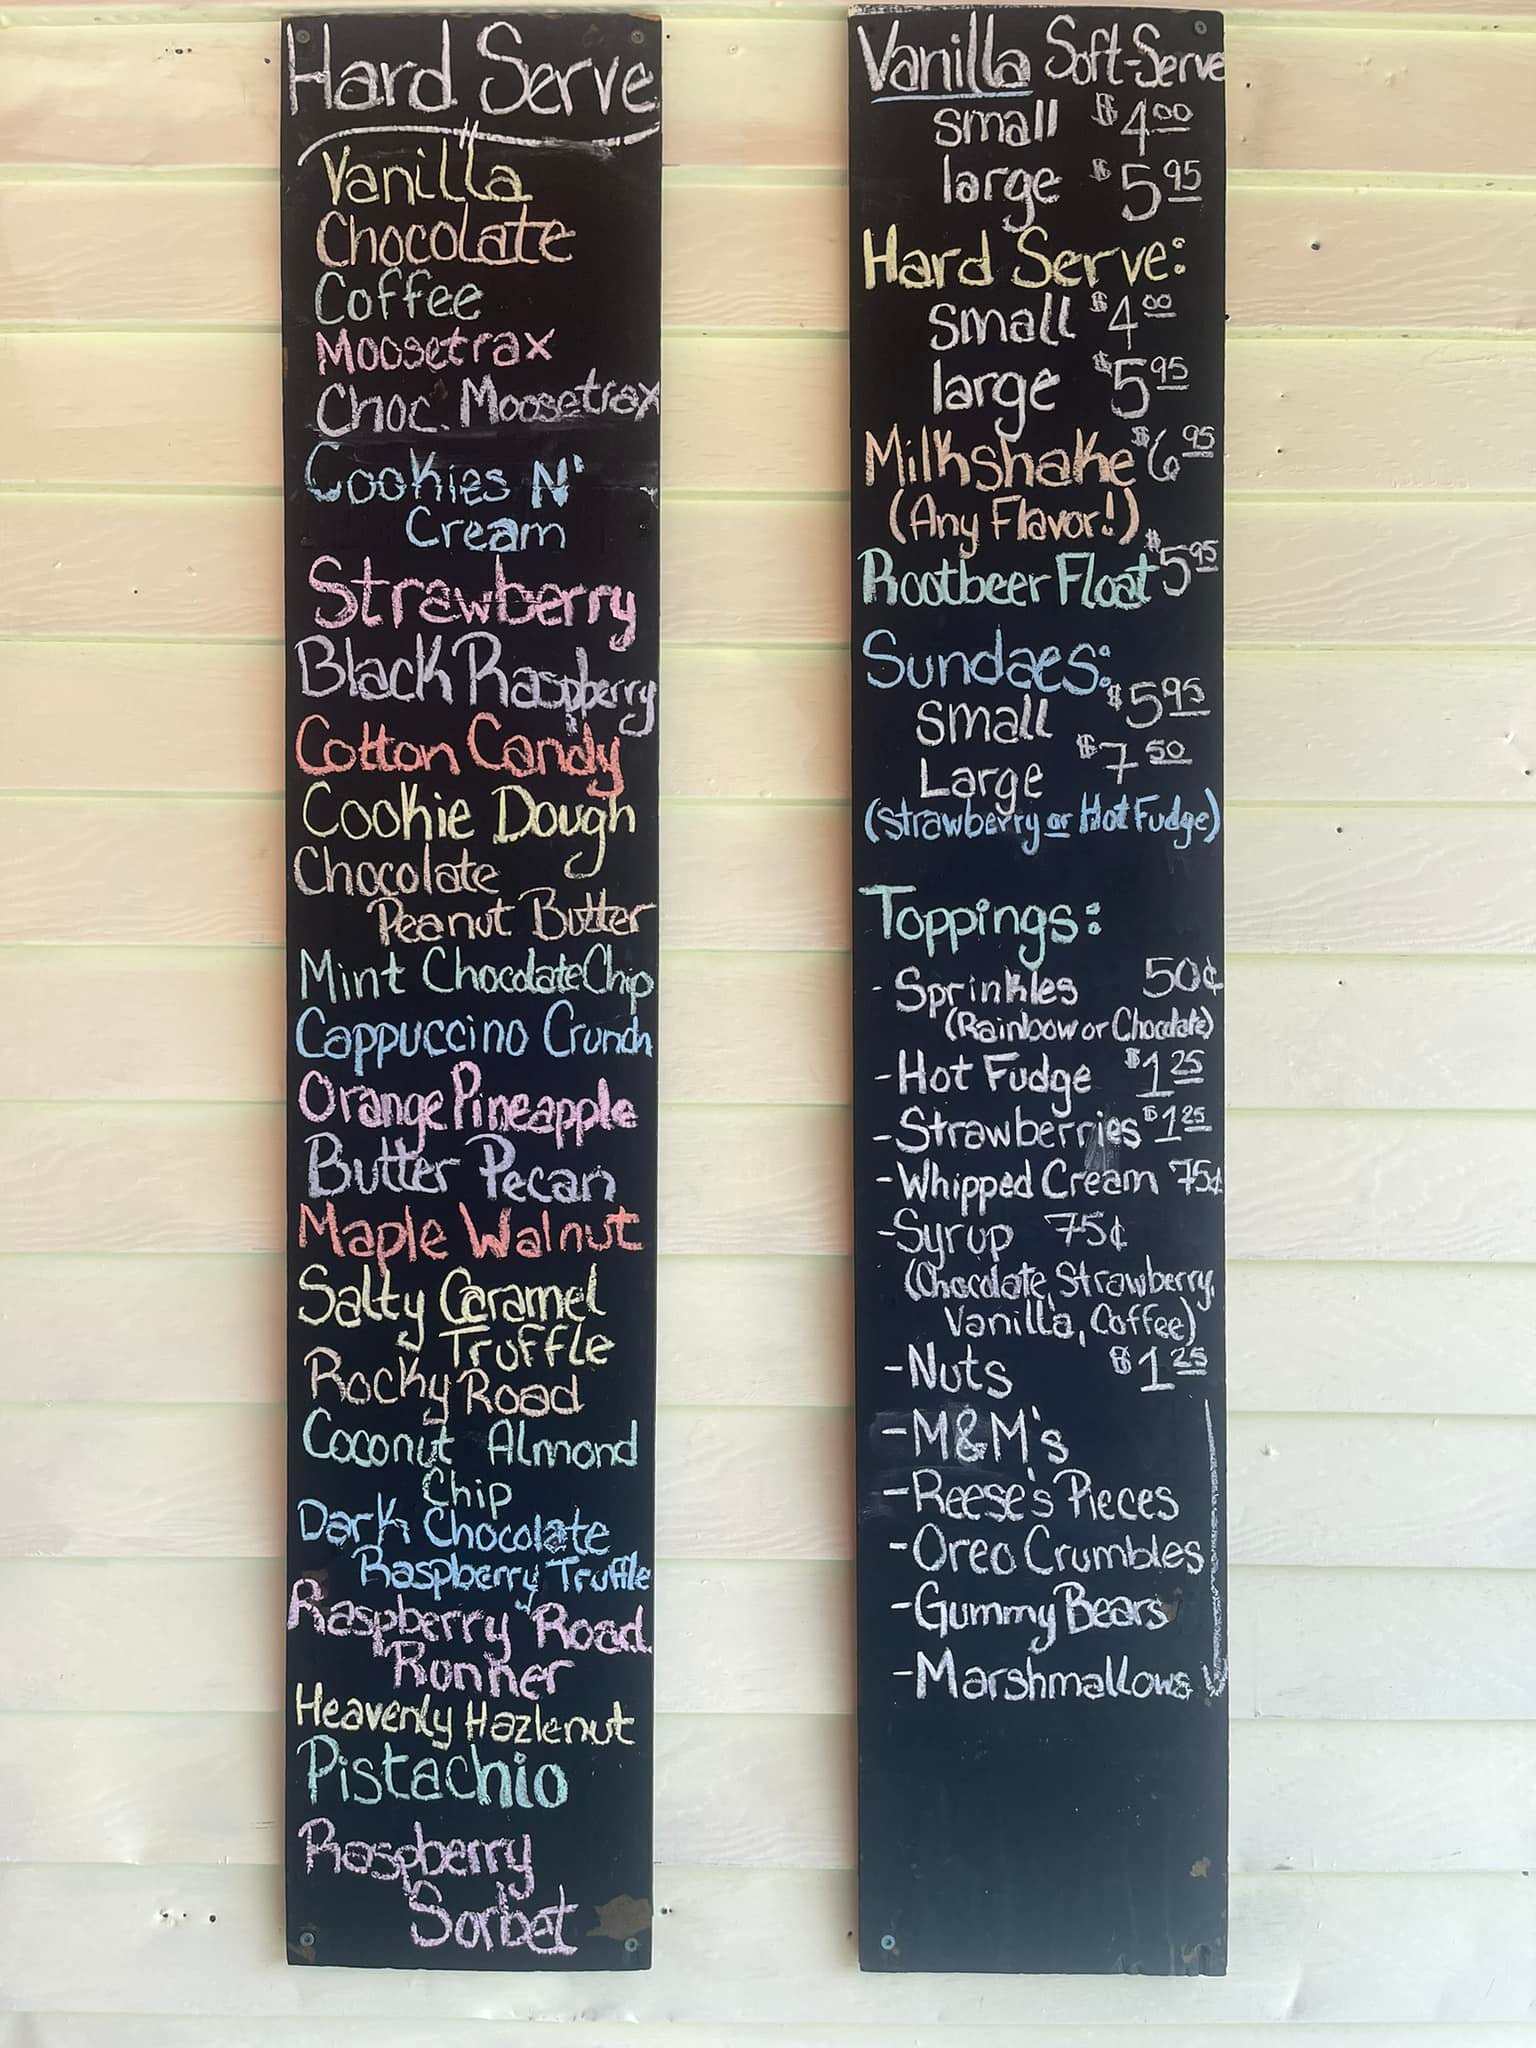 Hard Serve
Vanilla
Chocolate
Coffee
Moosetrax
Choc. Moosetrax
Cookies N'
Cream
Strawberry
Black Raspberry
Cotton Candy
Cookie Dough
Chocolate
Peanut Butter
Mint Chocolate Chip
Cappuccino Crunch
Orange Pineapple
Butter Pecan
Maple Walnut
Salty Caramel
Truffle
Rocky Road
Coconut Almond
Chip
Dark Chocolate
Raspberry Truffle
Raspberry Road
Runner
Heavenly Hazlenut
Pistachio
Raspberry
Sorbet
Vanilla Soft-Serve
small $4.00
large $5.95
Hard Serve:
small $4.00
large $5.95
Milkshake $6.95
(Any Flavor!)
Rootbeer Float $5.95
Sundaes:
Small $5.95
Large $7.50
(strawberry or Hot Fudge)
Toppings:
- Sprinkles 50¢
(Rainbow or Chocolate)
- Hot Fudge $1.25
- Strawberries $1.25
- Whipped Cream 75¢
- Syrup 75¢
(Chocolate, Strawberry,
Vanilla, Coffee)
- Nuts $1.25
- M&M's
- Reese's Pieces
- Oreo Crumbles
- Gummy Bears
- Marshmallows